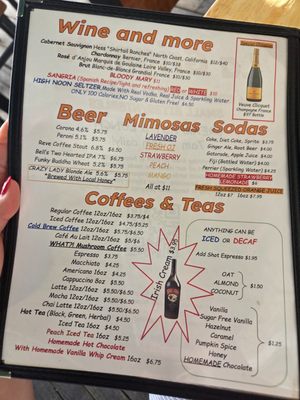 Wine and more
Cabernet Sauvignon Hess "Shirtail Ranches" North Coast, California $11/$40
Chardonnay Bernier, France $10/$38
Rosé d'Anjou Marquis de Goulaine Loire Valley, France $10/$38
Brut Blanc-de-Blanc Grandial France $10/$30
BLOODY MARY $11
SANGRIA (Spanish Recipe/light and refreshing) RED or WHITE $10
HIGH NOON SELTZER Made With Real Vodka, Real Juice & Sparkling Water
ONLY 100 Calories.NO Sugar & Gluten Free! $6.50
Veuve Clicquot
Champagne France
Bottle
Beer
Corona 4.6% $5.75
Peroni 5.1% $5.75
Reve Coffee Stout 6.8% $6.50
Bell's Two Hearted IPA 7% $6.75
Funky Buddha Wheat 5.2% $5.75
CRAZY LADY Blonde Ale 5.6% $5.75
*Brewed With Local Honey*
Mimosas
LAVENDER
FRESH OJ
STRAWBERRY
PEACH
MANGO
All at $11
Sodas
Coke, Diet Coke, Sprite $3.75
Ginger Ale, Root Beer $4.00
Gatorade, Apple Juice $4.00
Fiji (Bottled Water) $4.00
Perrier (Sparkling Water) $4.25
HOMEMADE STRAWBERRY
LEMONADE $6
FRESH SQUEEZED ORANGE JUICE
12oz $7 16oz $7.95
Coffees & Teas
Regular Coffee 12oz/16oz $3.75/$4
Iced Coffee 12oz/16oz $4.75/$5.25
Cold Brew Coffee 12oz/16oz $5.75/$6.50
Café Au Lait 12oz/16oz $5/$6
WHAT?! Mushroom Coffee $5.50
Espresso $3.75
Macchiato $4.25
Americano 16oz $4.25
Cappuccino 8oz $5.50
Latte 12oz/16oz $5.50/$6.50
Mocha 12oz/16oz $5.50/$6.50
Chai Latte 12oz/16oz $5.50/$6.50
Hot Tea (Black, Green, Herbal) $4.50
Iced Tea 16oz $5.25
Peach Iced Tea 16oz $5.75
Homemade Hot Chocolate
With Homemade Vanilla Whip Cream 16oz $6.75
Irish Cream $3.95
ANYTHING CAN BE
ICED or DECAF
Add Shot Espresso $1.95
OAT
ALMOND
COCONUT
$1.50
Vanilla
Sugar Free Vanilla
Hazelnut
Caramel
Pumpkin Spice
Honey
HOMEMADE Chocolate
$1.25